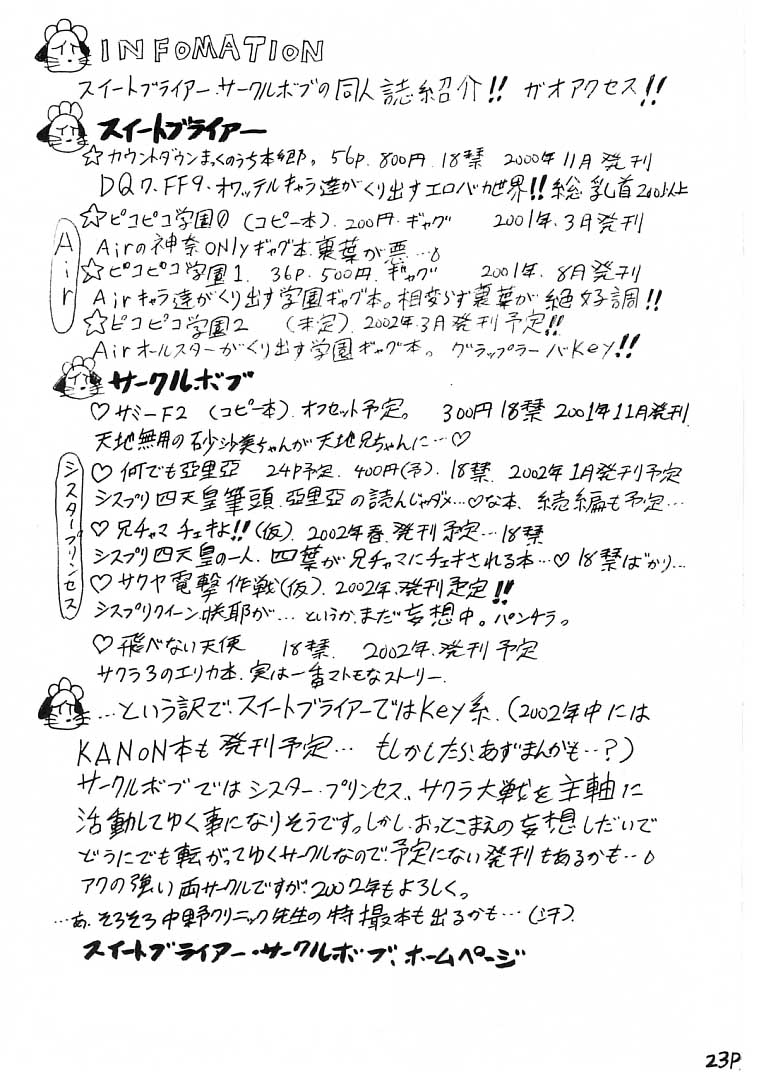 INFOMATION
スイートブライアー・サークルボブの同人誌紹介!! ガオアクセス!!
スイートブライアー
☆カウントダウンまっくのうち本郷。56p. 800円. 18禁 2000年11月発刊
DQ7.FF9.オワッテルキャラ達がくり出すエロバカ世界!!総乳首200以上
Air
☆ピコピコ学園0 (コピー本). 200円. ギャグ 2001年.3月発刊
Airの神奈ONlyギャグ本.裏葉が悪…
☆ピコピコ学園1. 36P. 500円. ギャグ 2001年.8月発刊
Airキャラ達がくり出す学園ギャグ本。相変らず裏葉が絶好調!!
☆ピコピコ学園2 (未定). 2002年.3月発刊予定!!
Airオールスターがくり出す学園ギャグ本。グラップラーバKey!!
サークルボブ
♡サミーF2 (コピー本). オフセット予定。 300円 18禁 2001年11月発刊
天地無用の砂沙美ちゃんが天地兄ちゃんに…♡
シスタープリンセス
♡何でも亞里亞 24P予定. 400円(予). 18禁. 2002年1月発刊予定
シスプリ四天皇筆頭.亞里亞の読んじゃダメ…♡な本、続編も予定…
♡兄チャマ チェキよ!!(仮). 2002年春.発刊予定…18禁
シスプリ四天皇の一人.四葉が兄チャマにチェキされる本…♡ 18禁ばかり…
♡サクヤ電撃作戦(仮). 2002年.発刊予定!!
シスプリクイーン.咲耶が…というか、まだ妄想中。パンチラ。
♡飛べない天使 18禁. 2002年.発刊予定
サクラ3のエリカ本.実は一番マトモなストーリー.
…という訳で、スイートブライアーではKey系.(2002年中には
KANON本も発刊予定… もしかしたら、あずまんがも…?)
サークルボブではシスター・プリンセス、サクラ大戦を主軸に
活動してゆく事になりそうです。しかし、おっとこまえの妄想しだいで
どうにでも転がってゆくサークルなので、予定にない発刊もあるかも…
アクの強い両サークルですが、2002年もよろしく。
…あ、そろそろ中野クリニック先生の特撮本も出るかも…(汗).
スイートブライアー・サークルボブ、ホームページ
23P